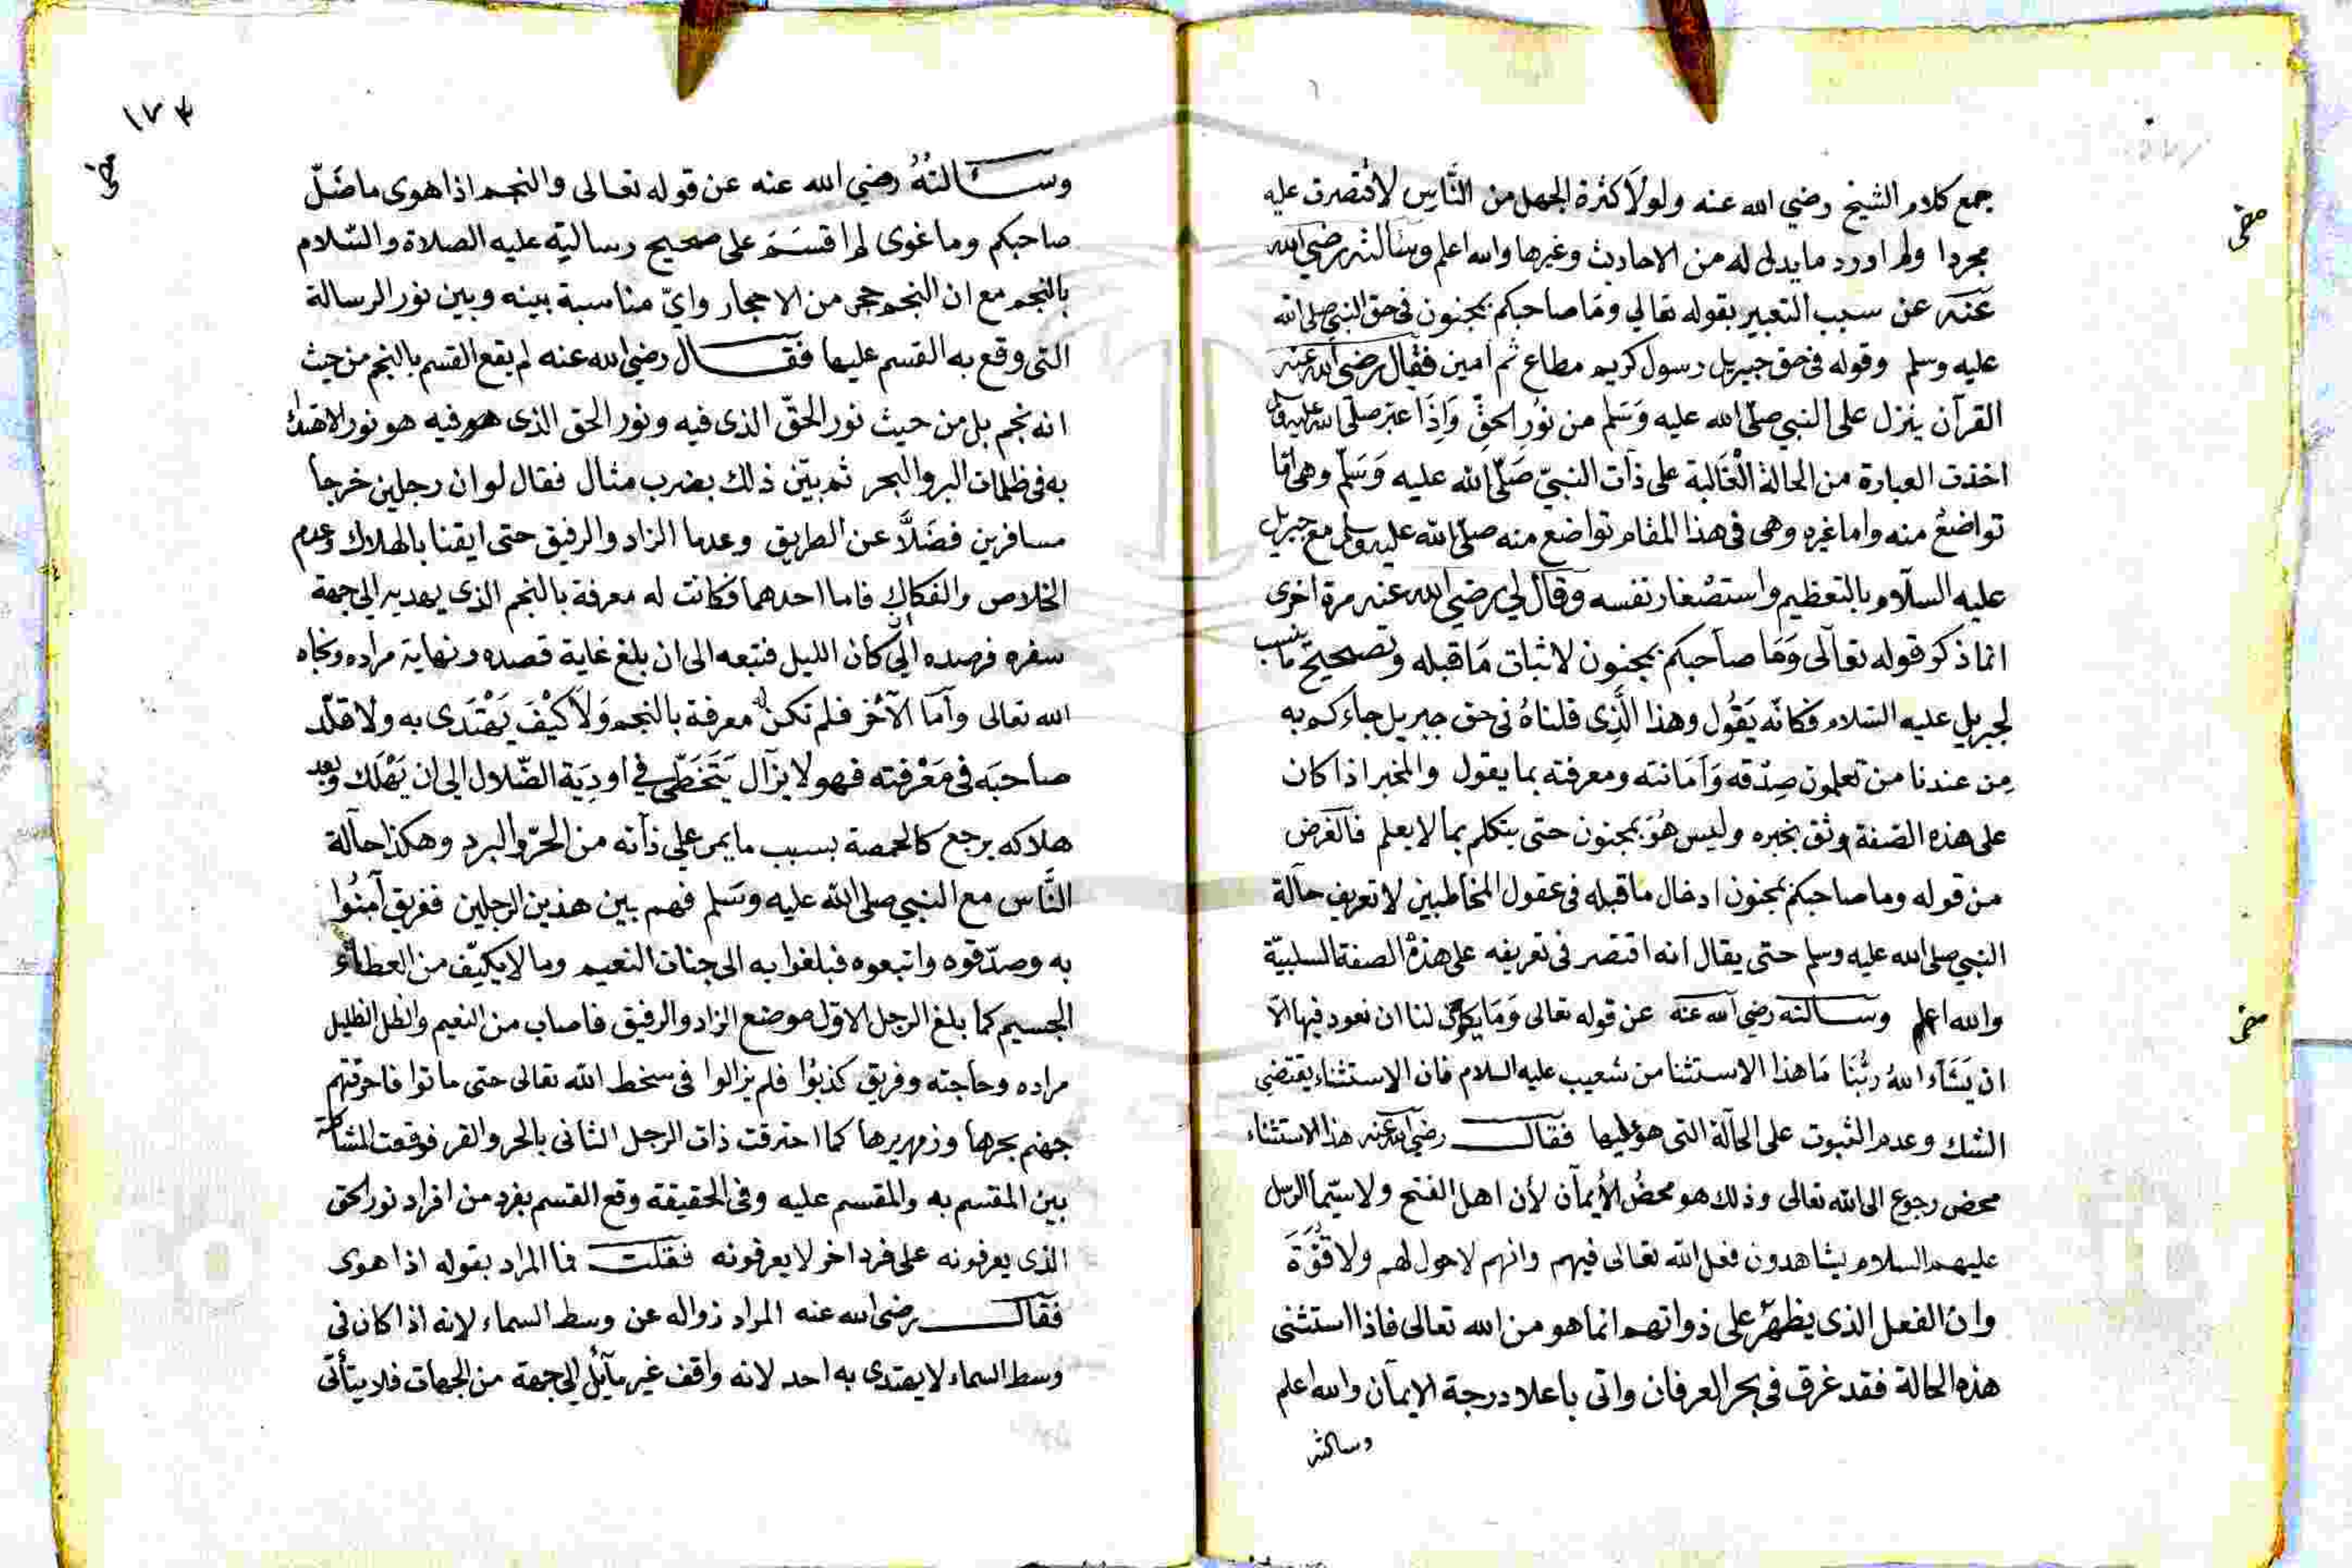 جمع كلام الشيخ رضي الله عنه ولولا كثرة الجهل من الناس لاقتصرت عليه
مجردا ولم اورد ما يدل له من الاحاديث وغيرها والله اعلم وسألته رضي الله
عنه عن سبب التعبير بقوله تعالي وما صاحبكم بمجنون في حق النبي صلى الله
عليه وسلم وقوله في حق جبريل رسول كريم مطاع ثم امين فقال رضي الله عنه
القرآن ينزل على النبي صلى الله عليه وسلم من نور الحق وإذا عبر صلى الله عليه وسلم
اخذت العبارة من الحالة الغالبة على ذات النبي صلى الله عليه وسلم وهي اما
تواضع منه واما غيره وهي في هذا المقام تواضع منه صلى الله عليه وسلم مع جبريل
عليه السلام بالتعظيم واستصغار نفسه وقال لي رضي الله عنه مرة اخرى
انما ذكر قوله تعالى وما صاحبكم بمجنون لاثبات ما قبله وتصحيح ما نسب
لجبريل عليه السلام فكانه يقول وهذا الذي قلناه في حق جبريل جاءكم به
من عندنا من تعلمون صدقه وامانته ومعرفته بما يقول والمخبر اذا كان
على هذه الصفة وثق بخبره وليس هو بمجنون حتى يتكلم بما لا يعلم فالغرض
من قوله وما صاحبكم بمجنون ادخال ما قبله في عقول المخاطبين لا تعريف حالة
النبي صلى الله عليه وسلم حتى يقال انه اقتصر في تعريفه على هذه الصفة السلبية
والله اعلم وسألته رضي الله عنه عن قوله تعالى وما يكون لنا ان نعود فيها الا
ان يشاء الله ربنا ما هذا الاستثنا من شعيب عليه السلام فان الاستثناء يقتضي
الشك وعدم الثبوت على الحالة التي هو عليها فقال رضي الله عنه هذا الاستثناء
محض رجوع الى الله تعالى وذلك هو محض الأيمان لأن اهل الفتح ولا سيما الرسل
عليهم السلام يشاهدون فعل الله تعالى فيهم وانهم لا حول لهم ولا قوة
وان الفعل الذي يظهر على ذواتهم انما هو من الله تعالى فاذا استثنى
هذه الحالة فقد غرق في بحر العرفان واتى باعلا درجة الايمان والله اعلم
وسالته
١٧٣
وسألته رضي الله عنه عن قوله تعالى والنجم اذا هوى ما ضل
صاحبكم وما غوى لم اقسم على صحيح رسالته عليه الصلاة والسلام
بالنجم مع ان النجم حجر من الاحجار واي مناسبة بينه وبين نور الرسالة
التي وقع به القسم عليها فقال رضي الله عنه لم يقع القسم بالنجم من حيث
انه نجم بل من حيث نور الحق الذي فيه ونور الحق الذي هو فيه هو نور الاهتداء
به في ظلمات البر والبحر ثم بين ذلك بضرب مثال فقال لو ان رجلين خرجا
مسافرين فضلا عن الطريق وعدما الزاد والرفيق حتى ايقنا بالهلاك وعدم
الخلاص والفكاك فاما احدهما فكانت له معرفة بالنجم الذي يهديه الي جهة
سفره فرصده الي كان الليل فتبعه الى ان بلغ غاية قصده ونهاية مراده ونجاه
الله تعالى وأما الآخر فلم تكن له معرفة بالنجم ولا كيف يهتدى به ولا قلد
صاحبه في معرفته فهو لا يزال يتخطى في اودية الضلال الي ان يهلك وبعد
هلاكه يرجع كالحمصة بسبب ما يمر علي ذاته من الحر والبرد وهكذا حالة
الناس مع النبي صلى الله عليه وسلم فهم بين هذين الرجلين ففريق آمنوا
به وصدقوه واتبعوه فبلغوا به الى جنات النعيم وما لا يكيف من العطاء
الجسيم كما بلغ الرجل الاول موضع الزاد والرفيق فاصاب من النعيم والظل الظليل
مراده وحاجته وفريق كذبوا فلم يزالوا في سخط الله تعالى حتى ماتوا فاحرقتهم
جهنم بحرها وزمهريرها كما احترقت ذات الرجل الثانى بالحر والقر فوقعت المشاكلة
بين المقسم به والمقسم عليه وفي الحقيقة وقع القسم بفرد من افراد نور الحق
الذي يعرفونه على فرد اخر لا يعرفونه فقلت فما المراد بقوله اذا هوى
فقال رضي الله عنه المراد زواله عن وسط السماء لانه اذا كان في
وسط السماء لا يهتدى به احد لانه واقف غير مايل الي جهة من الجهات فلا يتأتى